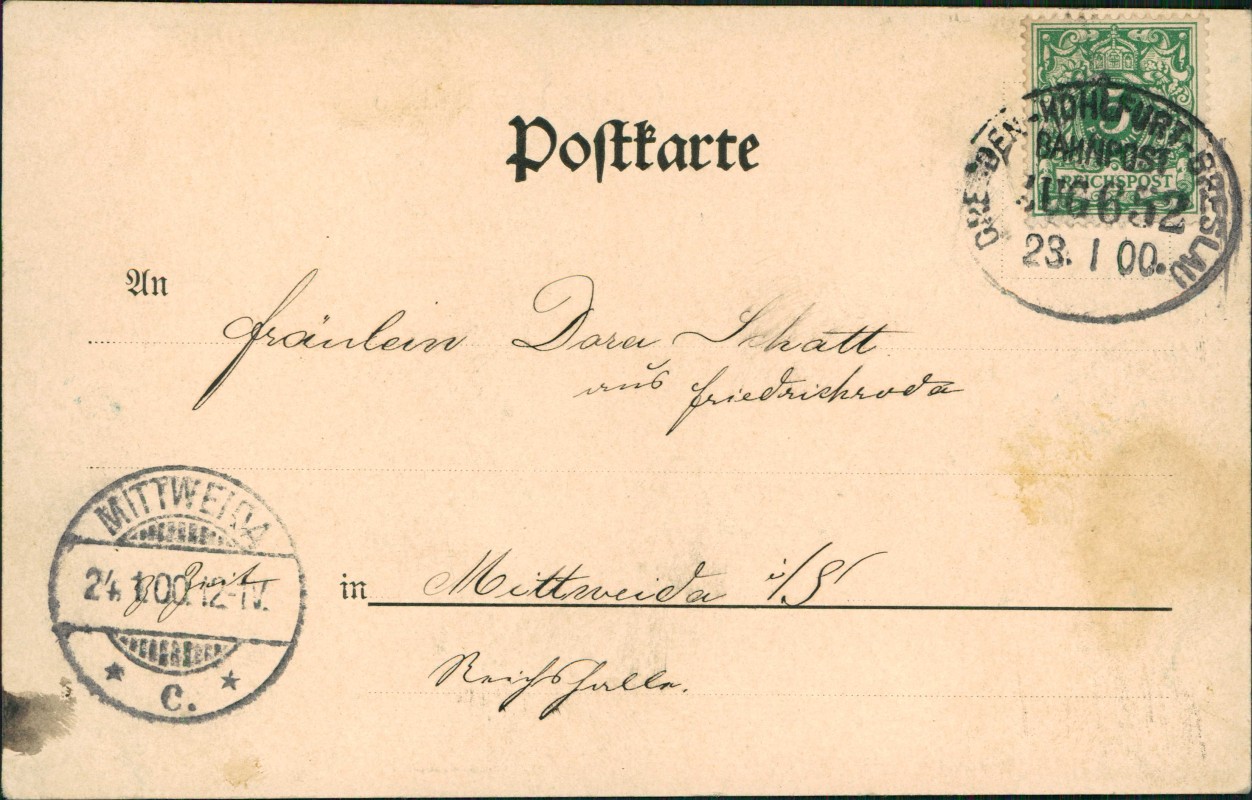 Postkarte
5
REICHSPOST
DRESDEN-KOHLFURT-BRESLAU
BAHNPOST
ZUG 652
23. 1 00.
An
Fräulein Dora Schatt
aus Friedrichroda
MITTWEIDA
24.1.00.12-1V.
z. Zeit
C.
in Mittweida i/S
Reichshalle.